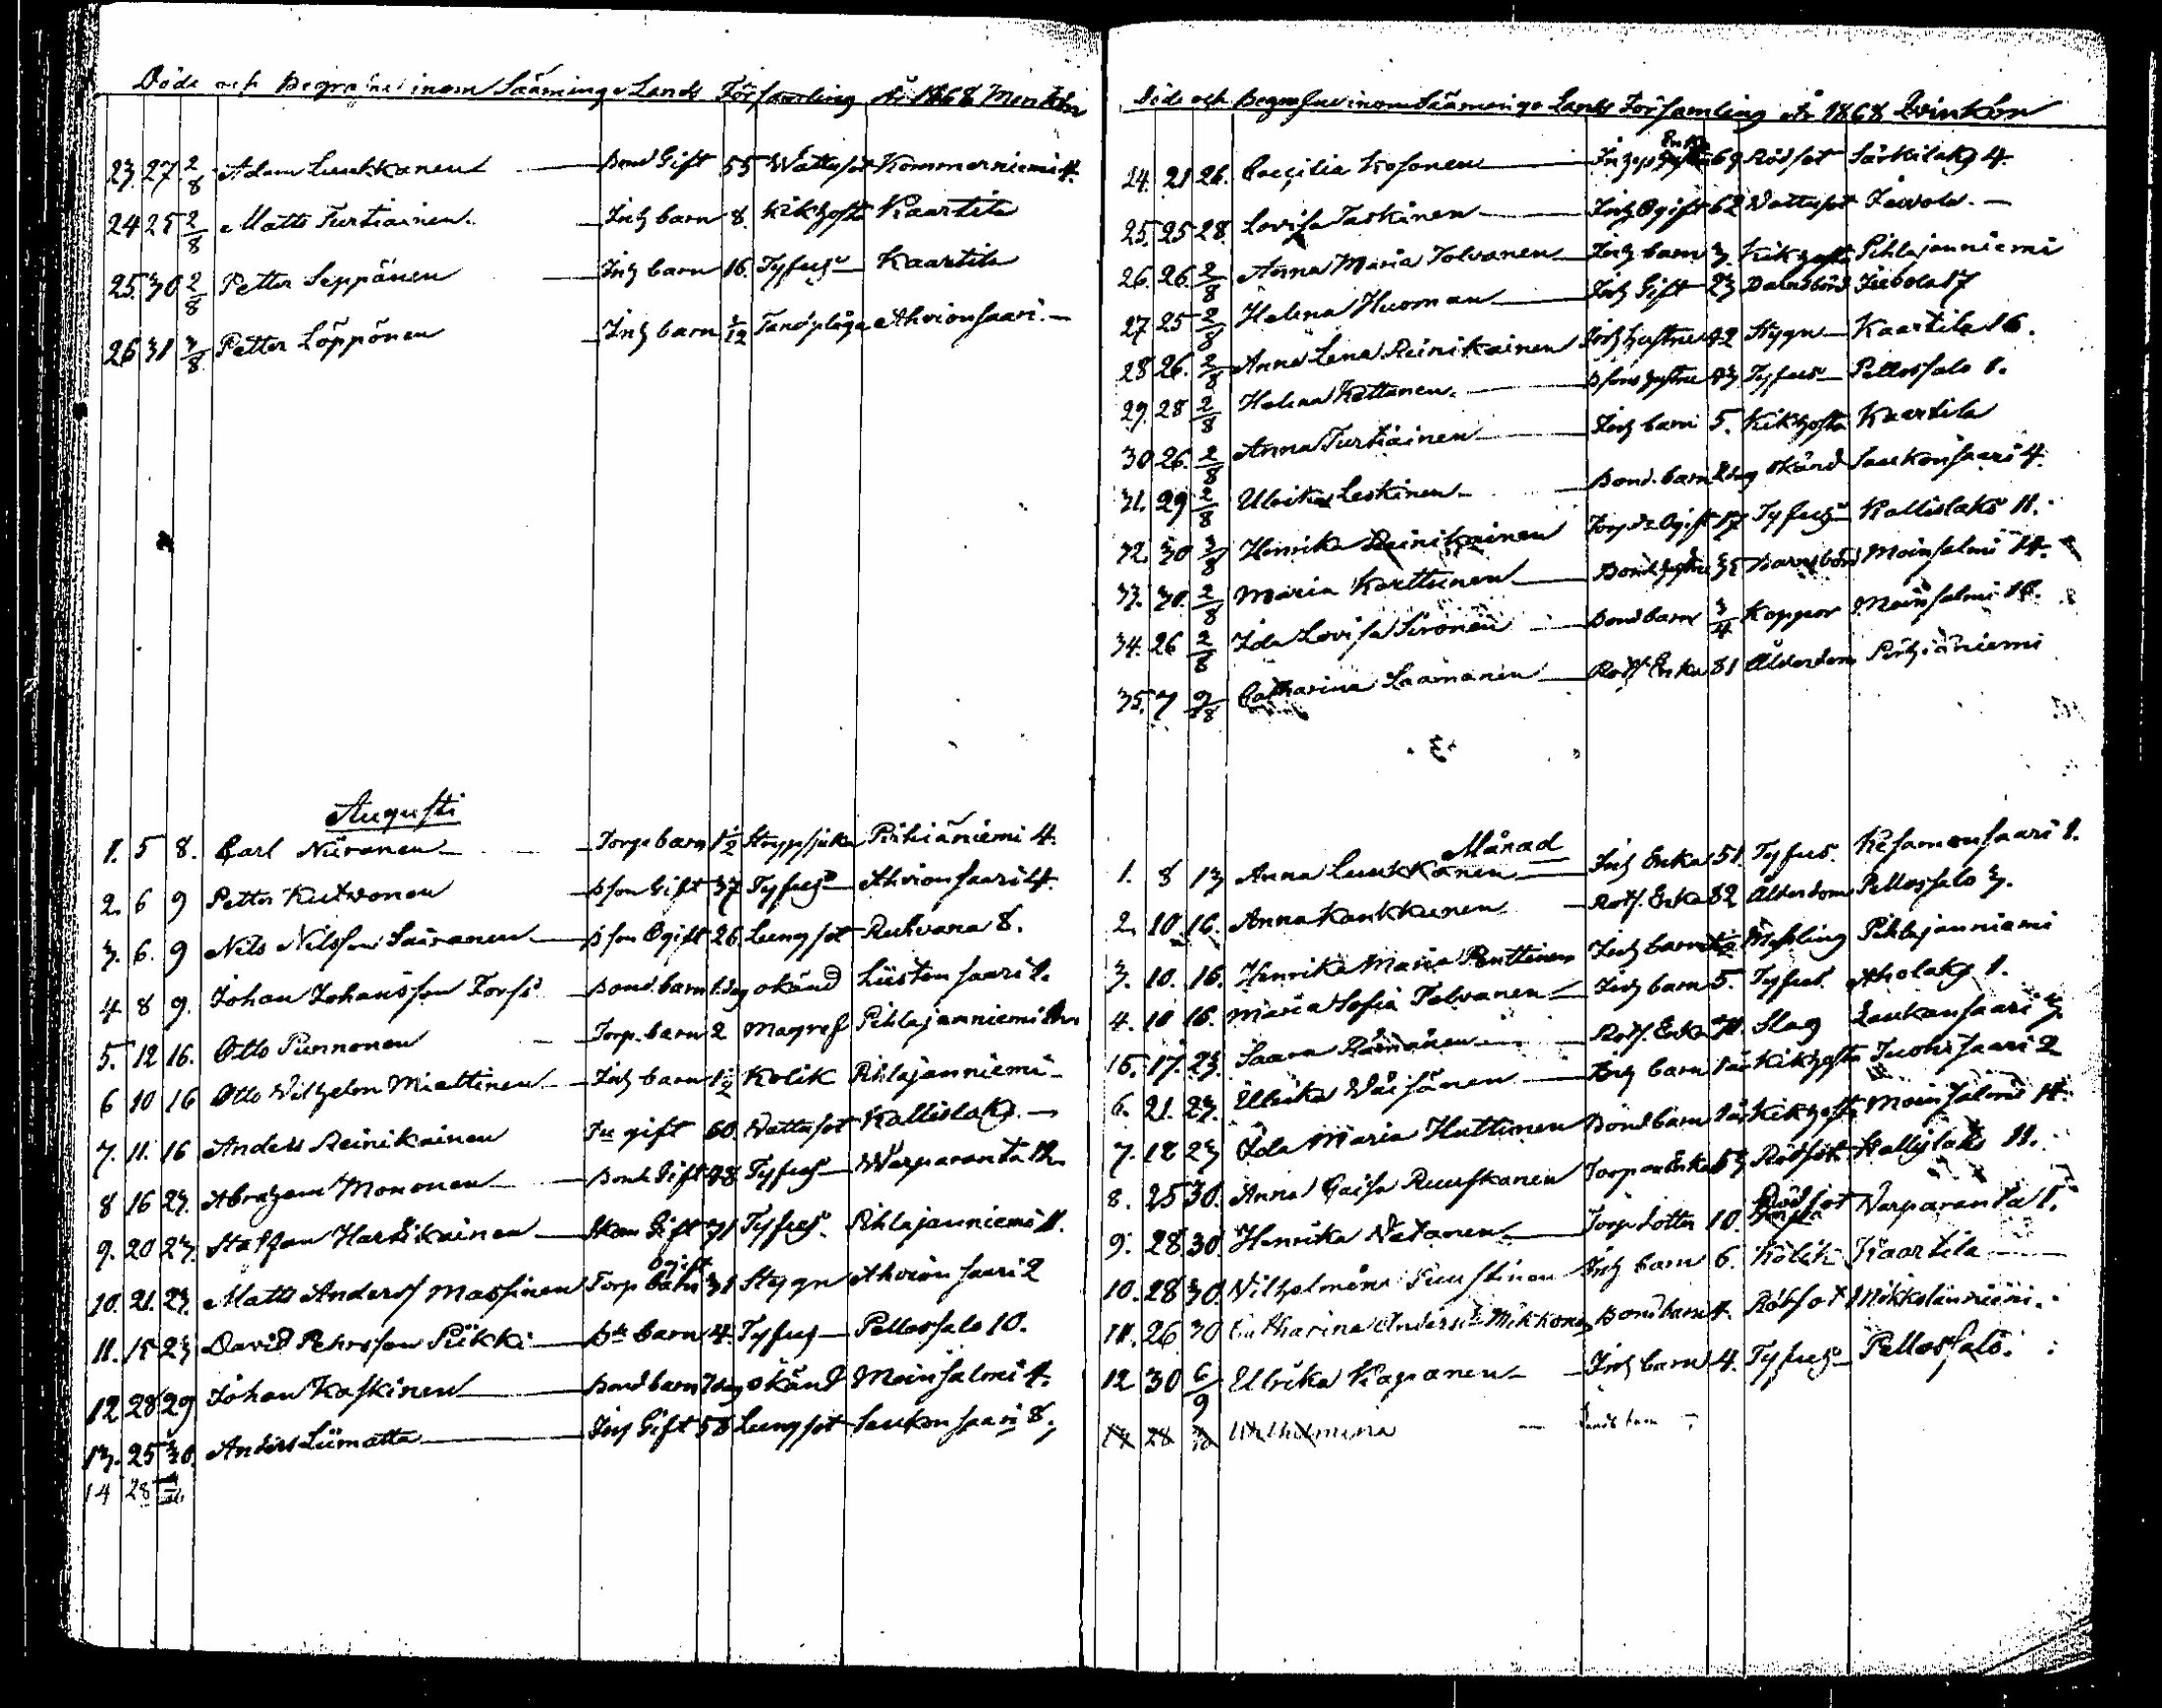 Döde och Begrafne inom Sääminge Lands Församling År 1868 Menkön
23. 27 2/8 Adam Luukkanen Bond Gift 55 Wattusot Kommerniemi 4.
24 25 2/8 Matts Turtiainen Inh barn 8. Kikhosta Kaartila
25. 30 2/8 Petter Seppänen Inh barn 16. Tyfus Kaartila
26 31 3/8 Petter Löppönen Inh barn 3/12 Tandplåga Ahvionsaari
Augusti
1. 5 8. Carl Niiranen Torp barn 1 1/2 Strypsjuka Pihiäniemi 4.
2. 6 9 Petter Kutvonen Bson Gift 37 Tyfus Ahvionsaari 4.
3. 6. 9 Nils Nilsson Sairanen Bson Ogift 26 Lungsot Ruhvana 8.
4 8 9. Johan Johansson Torfs Bond. barn 1. dag okänd Liistonsaari 1.
5. 12 16. Otto Punnonen Torp. barn 2 Magref Pihlajanniemi
6 10 16 Otto Wilhelm Miettinen Inh barn 1 1/2 Kolik Pihlajanniemi
7. 11. 16 Anders Reinikainen gift 60. Wattusot Kallislaks
8 16 23. Abraham Mononen Bonde Gift 48 Tyfus Warparanta 12.
9. 20 23. Staffan Hartikainen Gift 71 Tyfus Pihlajanniemi 11.
10. 21. 23. Matts Anderss Massinen Torp Ogift 31 Stygn Ahvionsaari 2
11. 15 23 David Pehrsson Piikki barn 4. Tyfus Pellossalo 10.
12 28 29 Johan Kaskinen Bond barn 7 dag okänd Moinsalmi 4.
13. 25 30. Anders Liimatta Inh Gift 58 Lungsot Saukonsaari 8.
14 28
Döde och Begrafne inom Sääminge Lands Församling År 1868 Qvinkön
24. 21 26. Caecilia Kosonen Inh Enka 69 Rödsot Särkilaks 4.
25. 25 28. Lovisa Taskinen Inh Ogift 62 Wattusot
26. 26. 2/8 Anna Maria Tolvanen Inh barn 3. Kikhosta Pihlajanniemi
27 25 2/8 Helena Huoman Inh Gift 23 Barnsbörd 17
28 26. 2/8 Anna Lena Reinikainen Inh hustru 42 Stygn Kaartila 16.
29. 28 2/8 Helena Kettunen Bsons hustru 43. Tyfus Pellossalo 1.
30 26. 2/8 Anna Turtiainen Inh barn 5. Kikhosta Kaartila
31. 29 2/8 Ulrika Leskinen Bond. barn 2 dag okänd Saukonsaari 4.
32. 30 3/8 Henrika Reinikainen Torp dr Ogift 17 Tyfus Kallislaks 11.
33. 30. 2/8 Maria Karttunen Bond hustru 35 Barnsbörd Moinsalmi 14.
34. 26 2/8 Ida Lovisa Sironen Bond barn 3/4 Koppor Moinsalmi 18.
35. 7 9/8 Catharina Laamanen Rotf. Enka 81 Ålderdom Pihjäniemi
Månad
1. 8 13 Anna Luukkanen Inh Enka 51. Tyfus. Kesamonsaari 1.
2. 10 16. Anna Kankkunen Rotf. Enka 82 Ålderdom Pellossalo 3.
3. 10. 16. Henrika Maria Penttinen Inh barn Messling Pihlajanniemi
4. 10 16. Maria Sofia Tolvanen Inh barn 5. Tyfus. Aholaks 1.
15. 17. 23. Saara Rämänen Rotf. Enka Slag Laukansaari 7.
6. 21. 23. Ulrika Wäisänen Inh barn 1 år Kikhosta Juohisaari 2
7. 18 23 Ida Maria Huttunen Bond barn 1 år Kikhosta Moinsalmi 14.
8. 25 30. Anna Caisa Ruuskanen Torpare Enka 53 Rödsot Kallislaks 11.
9. 28 30 Henrika Natanen Torp dotter 10. Rödsot Warparanta 1.
10. 28 30. Wilhelmina Puustinen Inh barn 6. Kolik Kaartila
11. 26 30 Catharina Andersd: Mikkonen Bond barn 4. Rödsot
12 30 6/9 Ulrika Kapanen Inh barn 4. Tyfus Pellossalo.
13 28 Wilhelmina